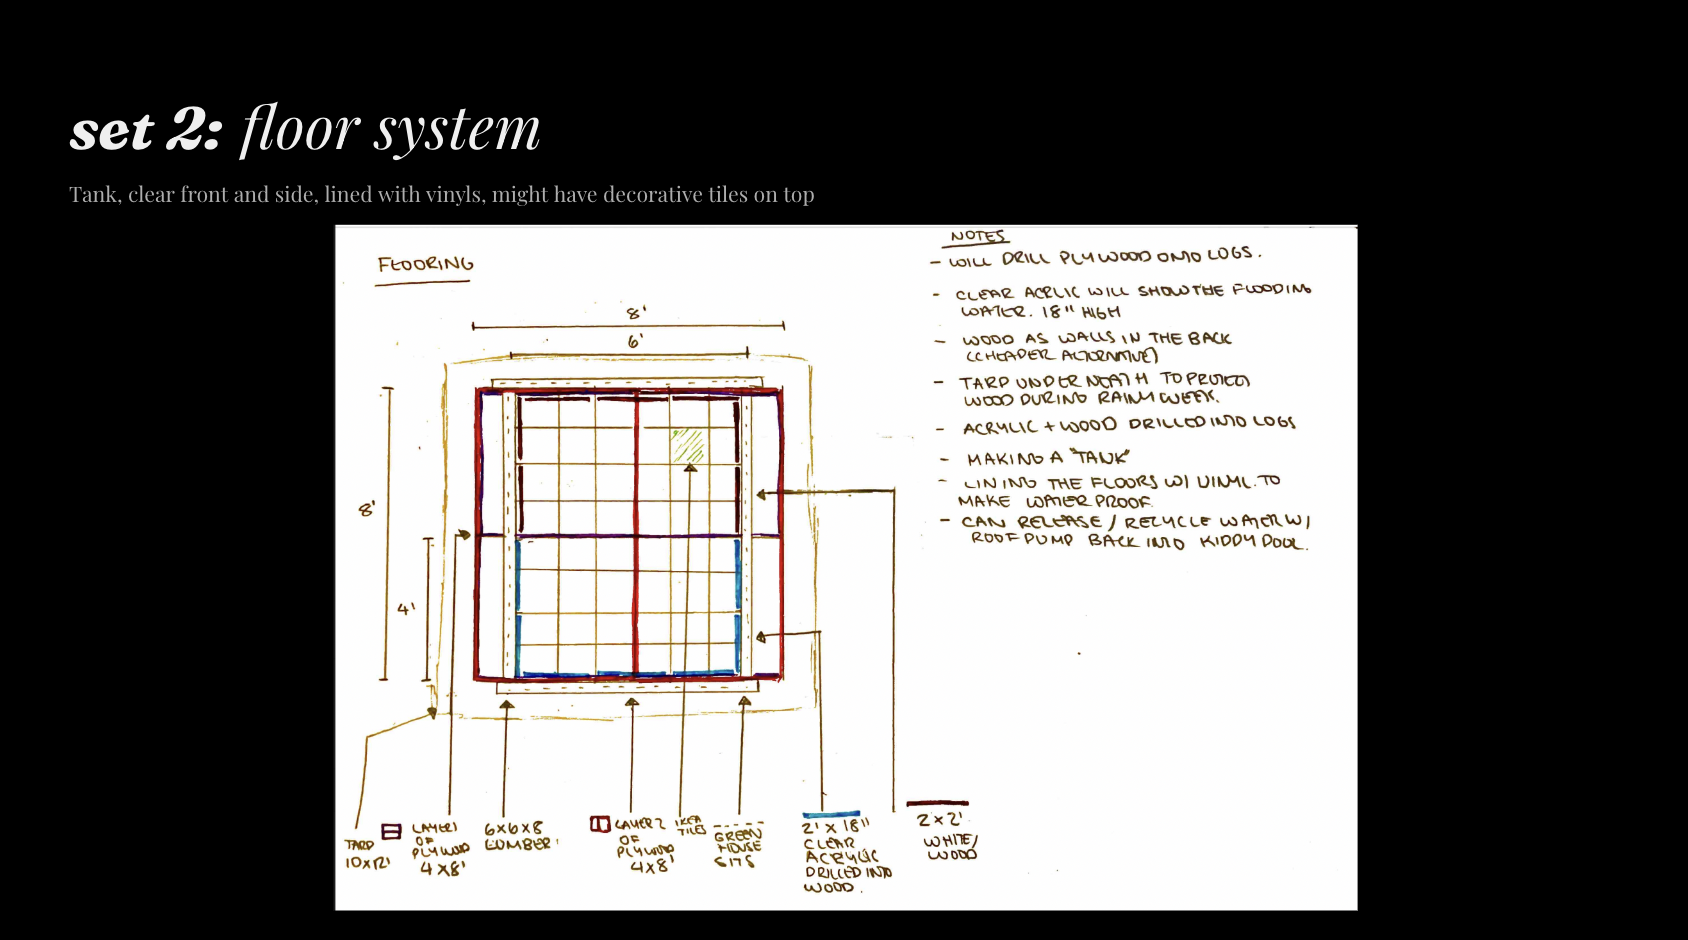 set 2: floor system
Tank, clear front and side, lined with vinyls, might have decorative tiles on top
FLOORING
8'
6'
8'
4'
TARP
10X12'
LAYER 1
OF
PLYWOOD
4X8'
6X6X8
LUMBER
LAYER 2
OF
PLYWOOD
4X8'
IKEA
TILES
GREEN
HOUSE
SITS
2' X 18"
CLEAR
ACRYLIC
DRILLED INTO
WOOD.
2 X 2'
WHITE/
WOOD
NOTES
- WILL DRILL PLYWOOD ONTO LOGS.
- CLEAR ACRLIC WILL SHOW THE FLOODING
WATER. 18" HIGH
- WOOD AS WALLS IN THE BACK
(CHEAPER ALTERNATIVE)
- TARP UNDERNEATH TO PROTECT
WOOD DURING RAINY WEEK.
- ACRYLIC + WOOD DRILLED INTO LOGS
- MAKING A "TANK"
- LINING THE FLOORS W/ VINYL TO
MAKE WATERPROOF.
- CAN RELEASE / RECYCLE WATER W/
ROOF PUMP BACK INTO KIDDY POOL.